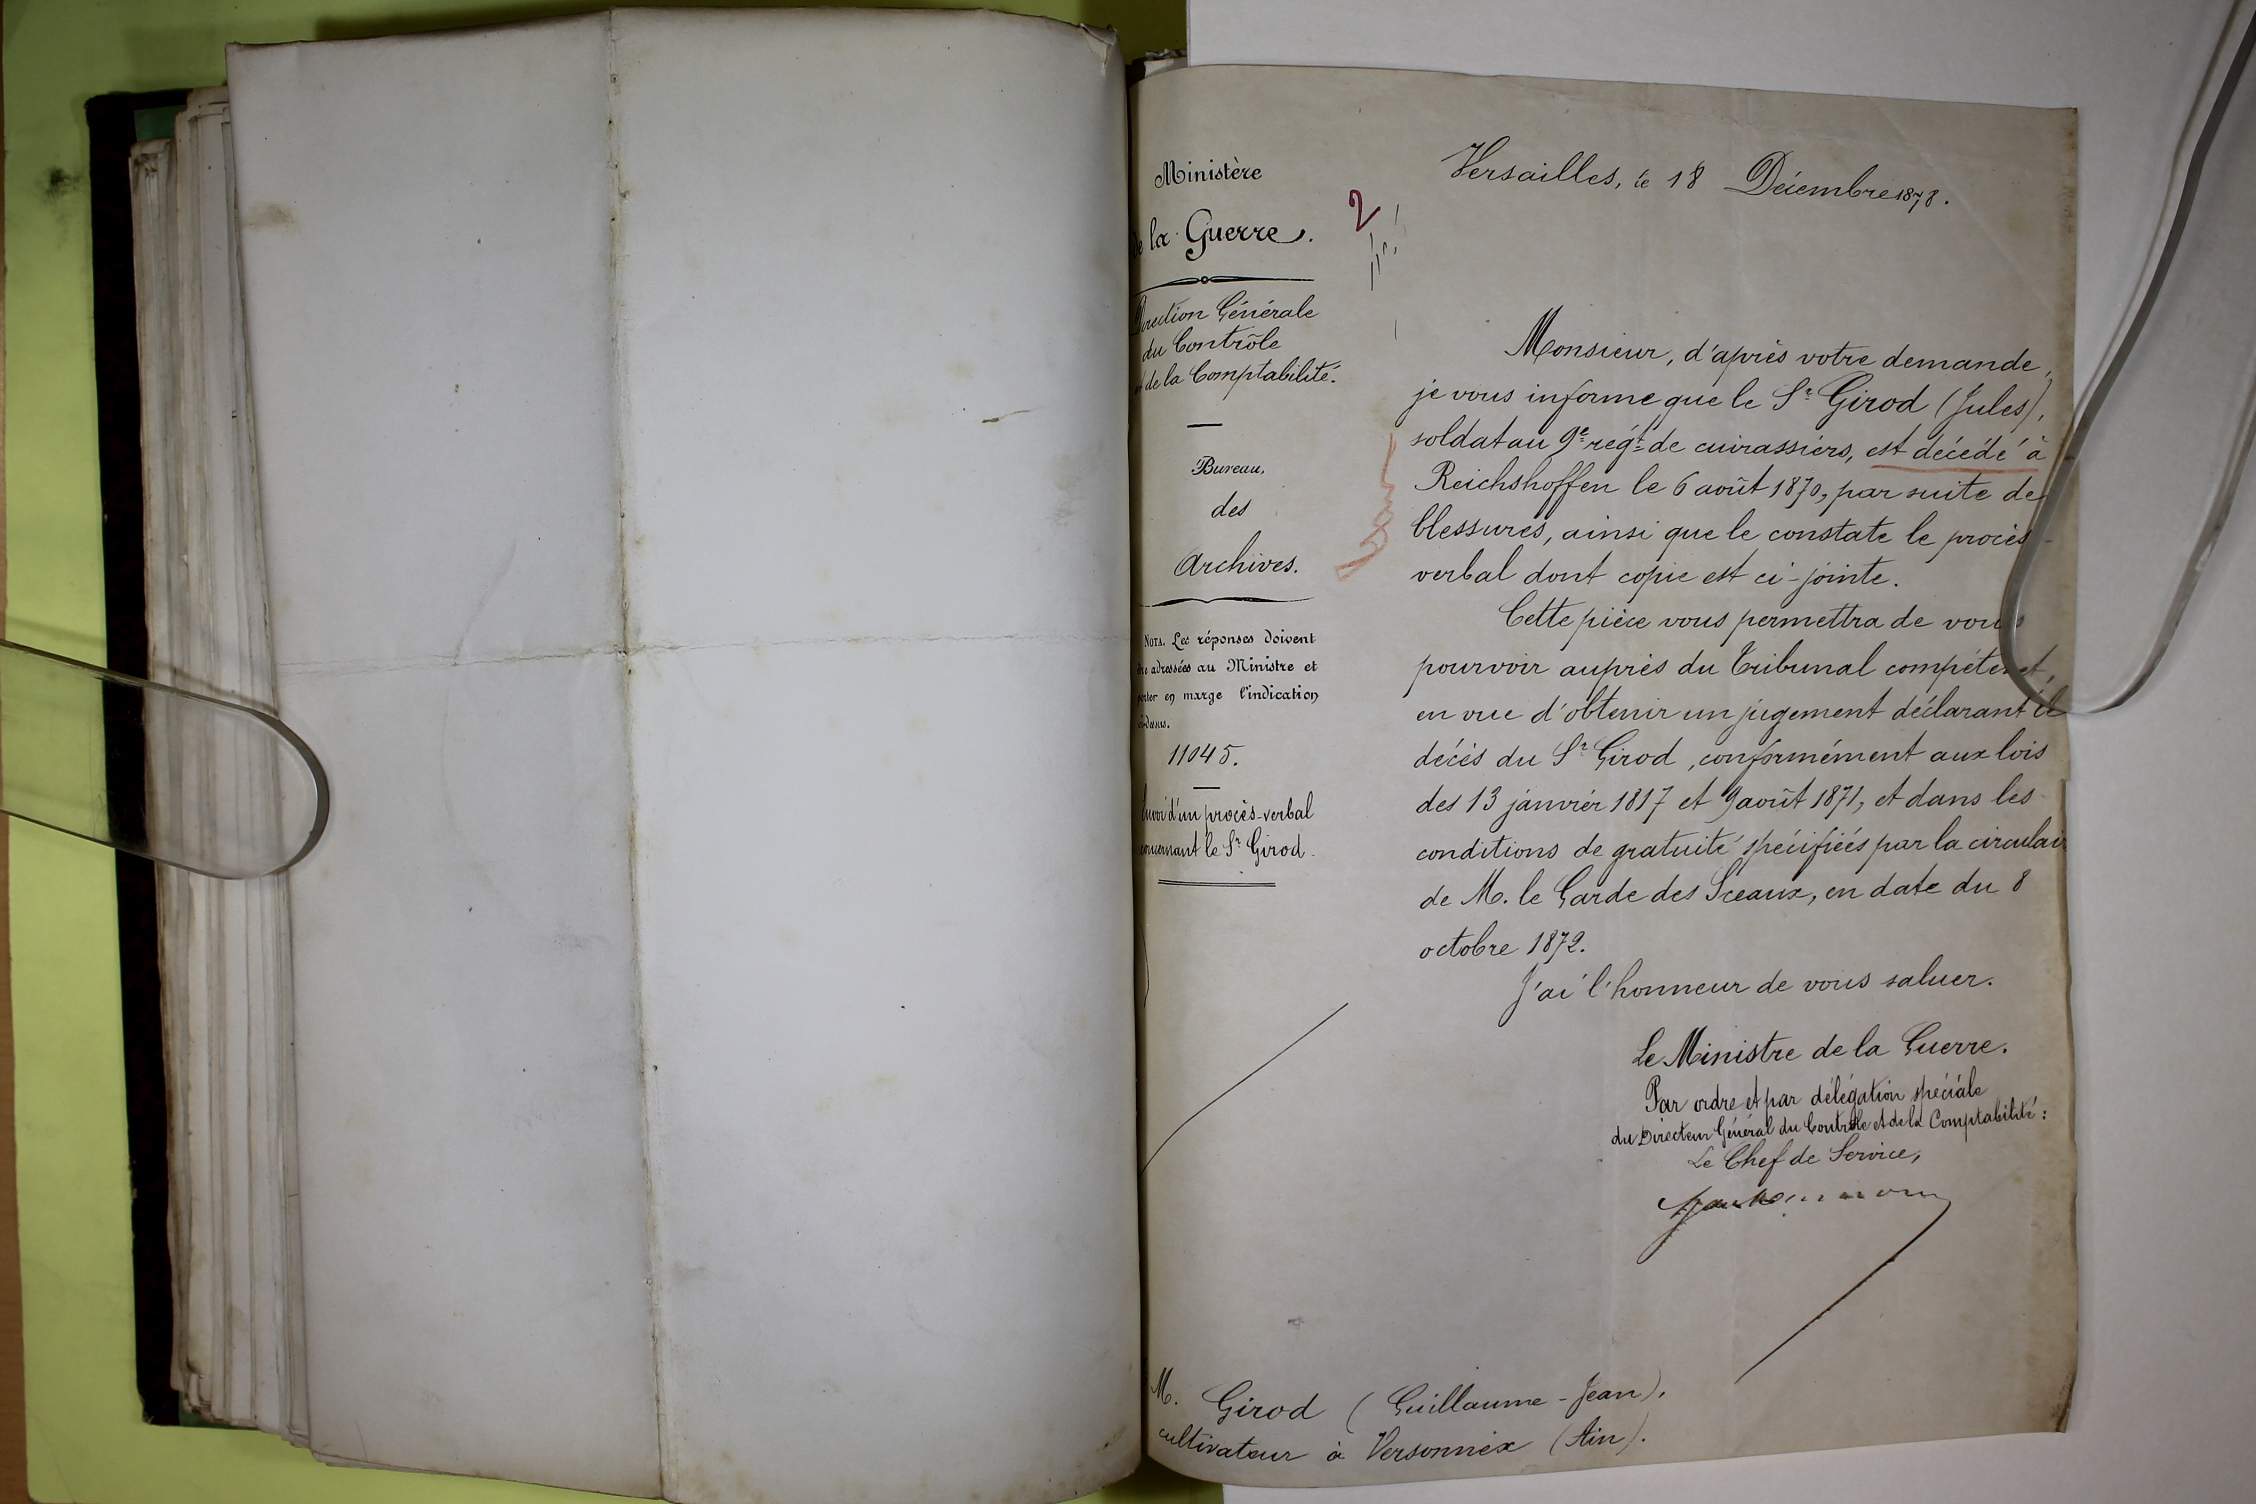 Ministère
de la Guerre.
Direction Générale
du Contrôle
et de la Comptabilité.
Bureau
des
Archives.
Nota. Les réponses doivent
être adressées au Ministre et
porter en marge l'indication
ci-dessus.
11045.
Envoi d'un procès-verbal
concernant le Sr Girod.
2
Versailles, le 18 Décembre 1878.
Monsieur, d'après votre demande,
je vous informe que le Sr Girod (Jules),
soldat au 9e régt de cuirassiers, est décédé à
Reichshoffen le 6 août 1870, par suite de
blessures, ainsi que le constate le procès-
verbal dont copie est ci-jointe.
Cette pièce vous permettra de vous
pourvoir auprès du Tribunal compétent,
en vue d'obtenir un jugement déclarant le
décès du Sr Girod, conformément aux lois
des 13 janvier 1817 et 9 août 1871, et dans les
conditions de gratuité spécifiées par la circulair
de M. le Garde des Sceaux, en date du 8
octobre 1872.
J'ai l'honneur de vous saluer.
Le Ministre de la Guerre.
Par ordre et par délégation spéciale
du Directeur Général du Contrôle et de la Comptabilité:
Le Chef de Service,
M. Girod (Guillaume-Jean),
cultivateur à Versonnex (Ain).